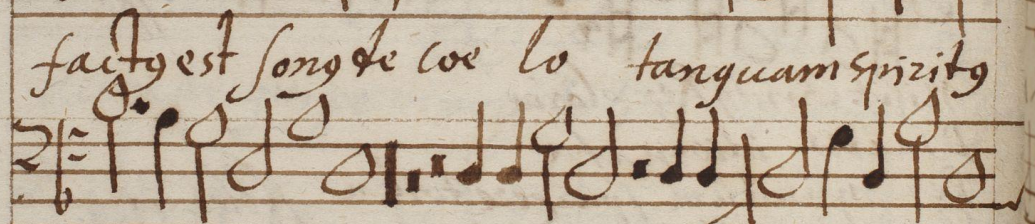 factꝰ est sonꝰ de coe lo tanquam spiritꝰ